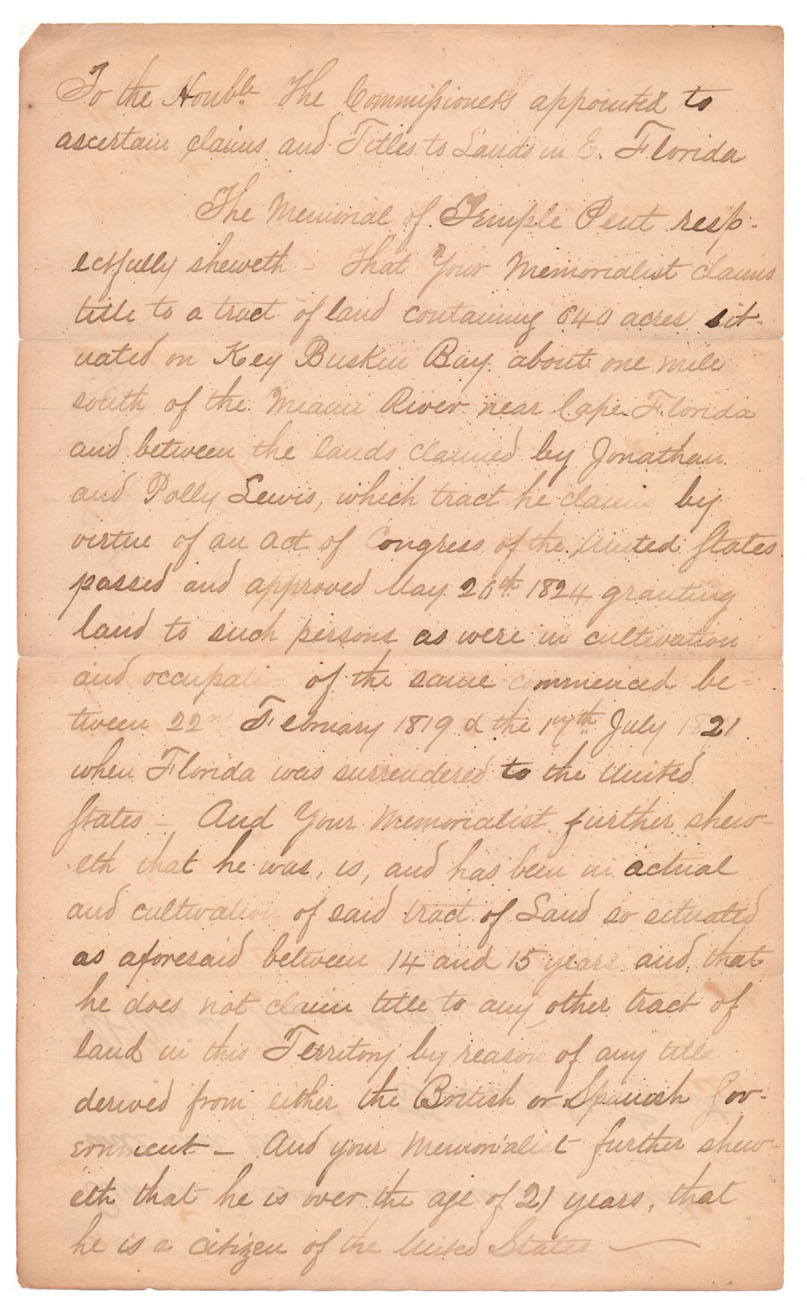 To the Honble. The Commissioners appointed to
ascertain claims and Titles to Lands in E. Florida
The Memorial of Temple Pent resp-
ectfully sheweth - That Your Memorialist claims
title to a tract of land containing 640 acres sit-
uated on Key Buskin Bay about one mile
south of the Miami River near Cape Florida
and between the lands claimed by Jonathan
and Polly Lewis, which tract he claims by
virtue of an act of Congress of the United States
passed and approved May 26th 1824 granting
land to such persons as were in cultivation
and occupation of the same commenced be-
tween 22nd February 1819 & the 17th July 1821
when Florida was surrendered to the United
States - And Your Memorialist further shew-
eth that he was, is, and has been in actual
and cultivation of said tract of Land so situated
as aforesaid between 14 and 15 years and that
he does not claim title to any other tract of
land in this Territory by reason of any title
derived from either the British or Spanish Gov-
ernment - And your Memorialist further shew-
eth that he is over the age of 21 years, that
he is a citizen of the United States -